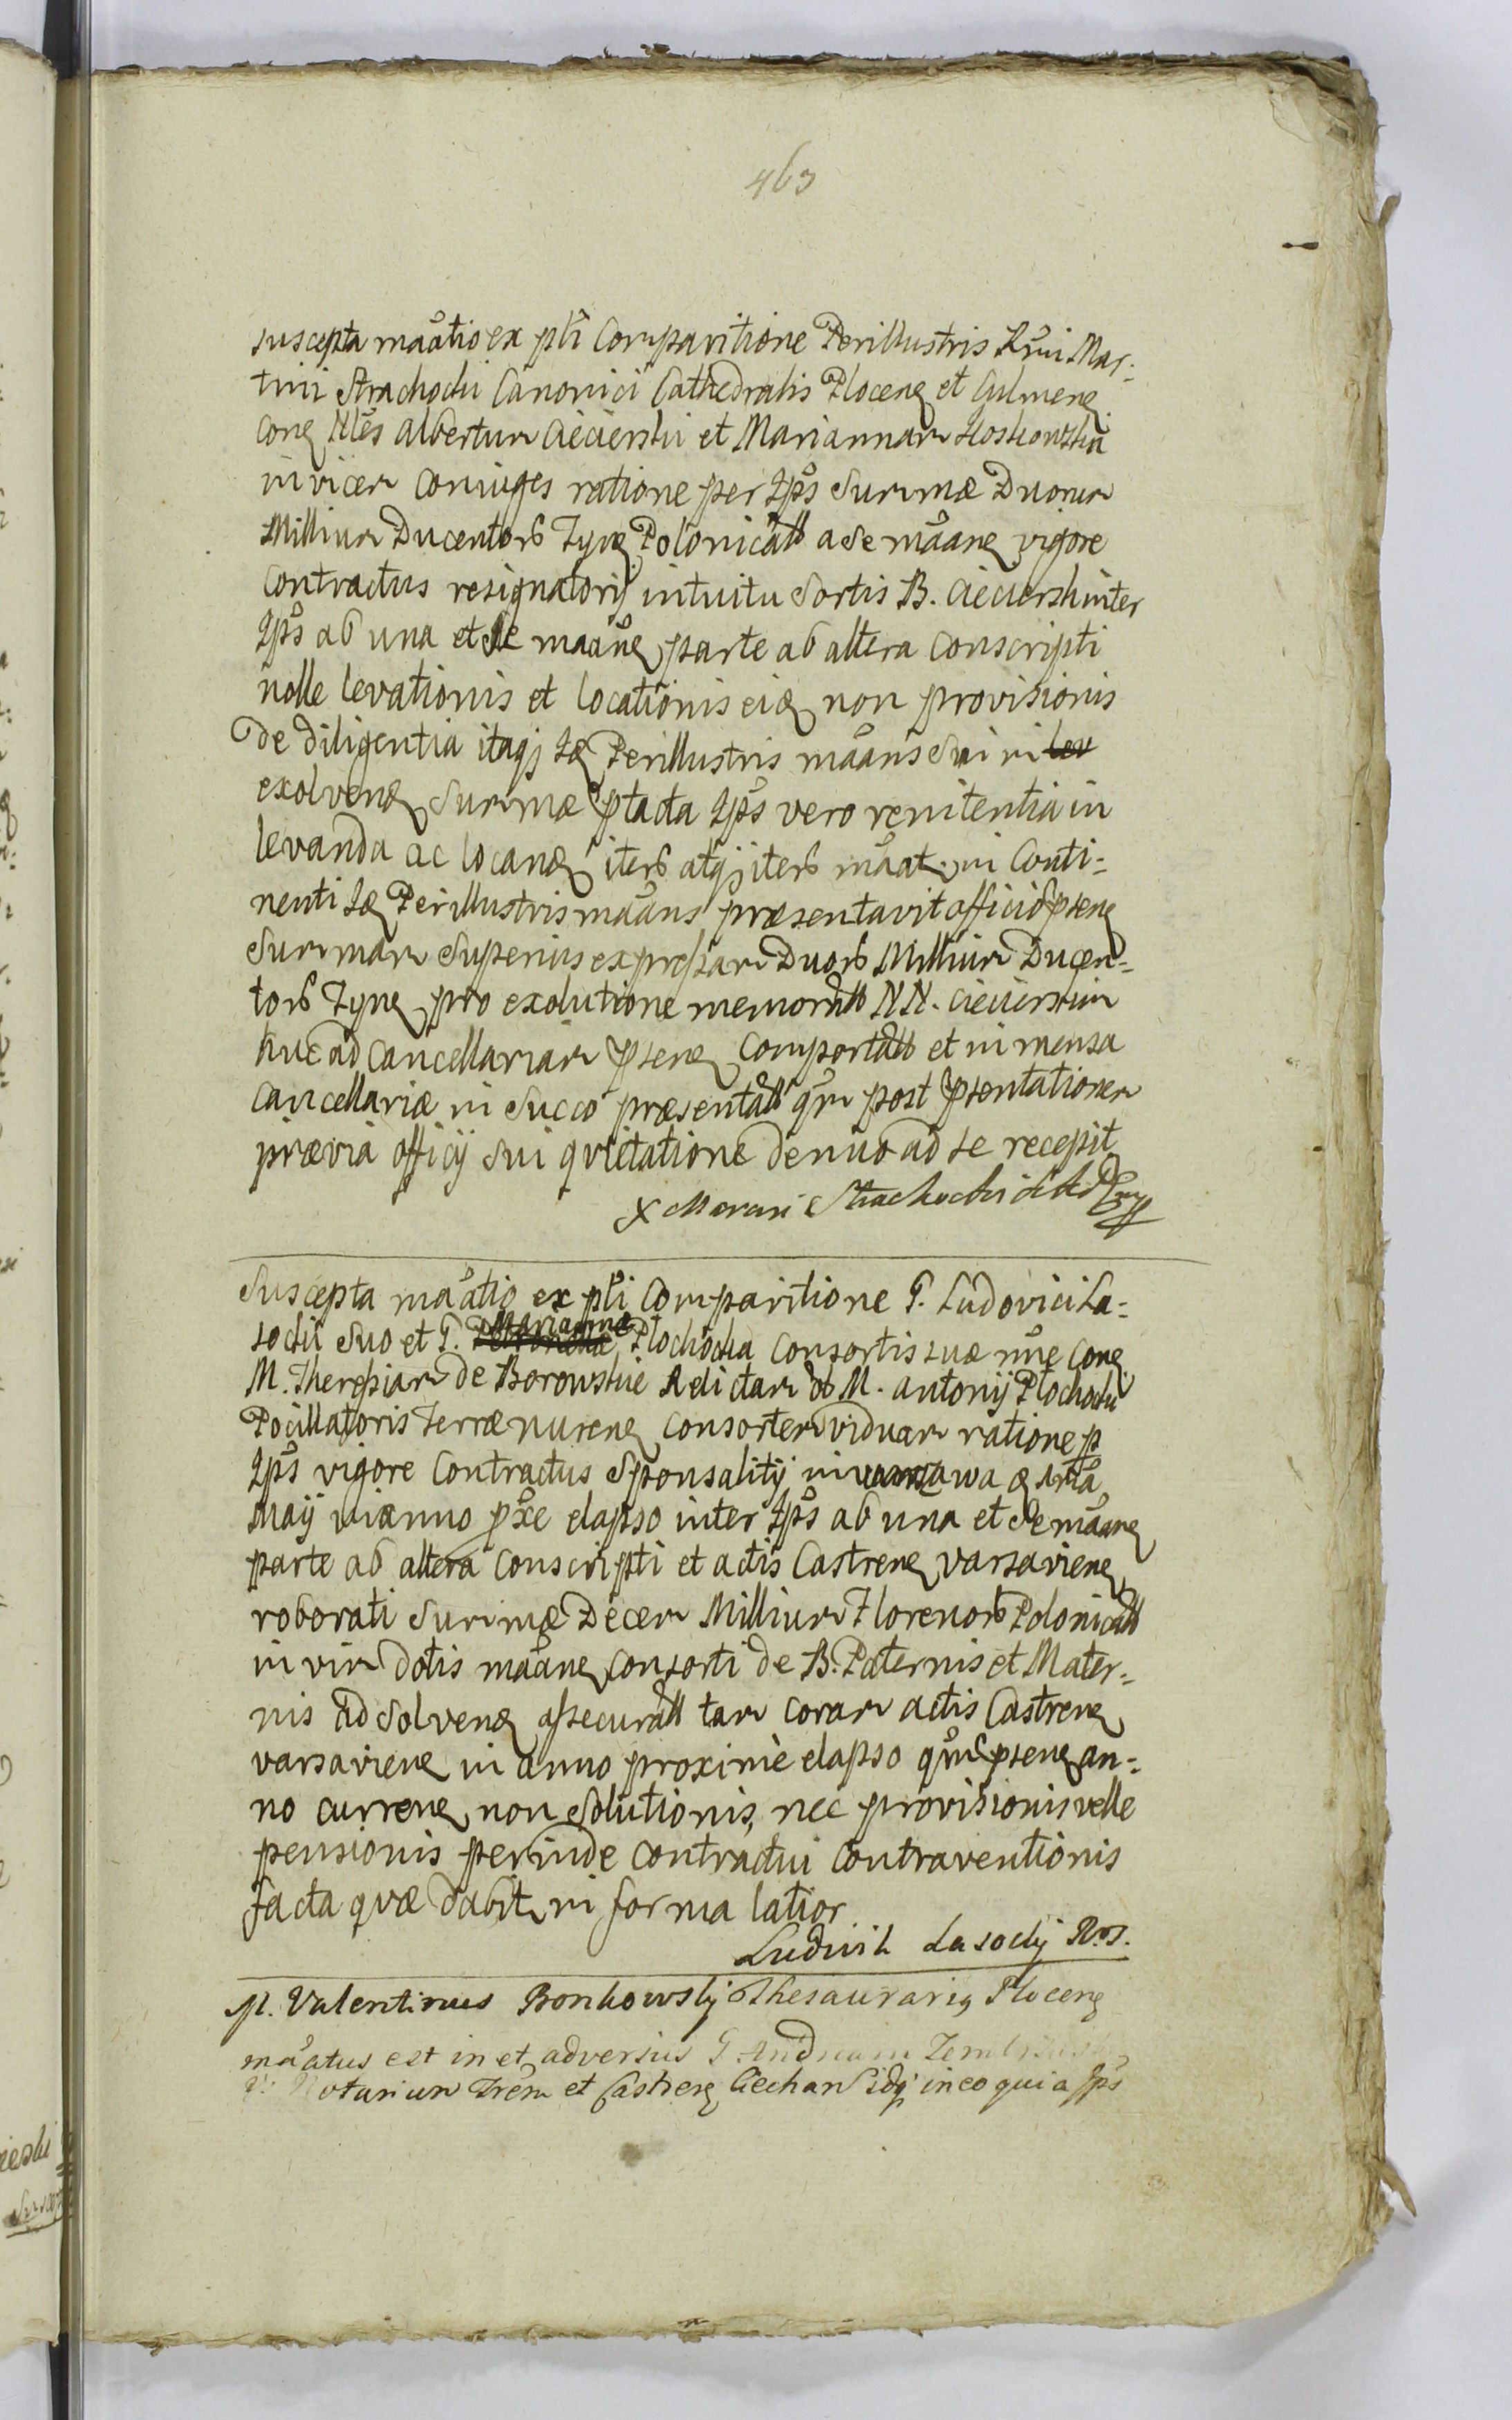 463
suscepta maãtio ex pñti Comparitione Perillustris Rñdi Mar-
tini Strachocki Canonici Cathedralis Plocen et Culmen
con Nles Albertum Ciecierski et Mariannam
invicem Coniuges ratione per Ipõs Summæ Duorum
Millium Ducentorũ Tyn Polonicalũ a se maãne vigore
Contractus resignatorij intuitu Sortis B. Ciecierski inter
Ipõs ab una et se maãne parte ab altera Conscripti
nolle levationis et locationis non provisionis
De diligentia itaqȝ Perillustris maãns Sui in lev
exolven Summæ Ipõs vero renitentia in
levanda ac locan iterũ atqȝ iterũ maãt in Conti-
nenti Perillustris maãns præsentavit officio pñsen
Summam Superius expressam Duorũ Millium Ducen-
torũ Tyn pro exolutione memoratũ NN. Ciecierskim
huc ad Cancellariam pñsen Comportatũ et in mensa
Cancellariæ in Sacco præsentatũ qm post pñsentationem
prævia officij Sui qvietatione Denuo ad se recepit
X Marcin Strachocki

Suscepta maãtio ex pñti Comparitione G. Ludovici La-
socki Suo et G. Mariannæ Plochocka Consortis suæ nõie con
M. Theresiam De Borowskie Relictam M. Antonij Plochocki
Pocillatoris Terræ Nuren Consortem viduam ratione p
Ipõs vigore Contractus Sponsalitij in
Maij in anno pxe elapso inter Ipõs ab una et Se maãne
parte ab altera Conscripti et actis Castren Varsavien
roborati Summæ Decem Millium Florenorũ Polonicalũ
in vim Dotis maãne Consorti De B. Paternis et Mater-
nis ad Solven assecuratũ tam Coram actis Castren
Varsavien in anno proxime elapso qm pñsen an-
no curren non Solutionis, nec provisionis velle
pensionis perinde Contractui Contraventionis
facta quæ Dabit in forma latior
Ludwik Lasocky
M. Valentinus Bonkowsky Thesaurariq Plocen
maãtus est in et adversus G.
Notarium Trem et Castren Ciechan Idqȝ in eo quia Ipõs